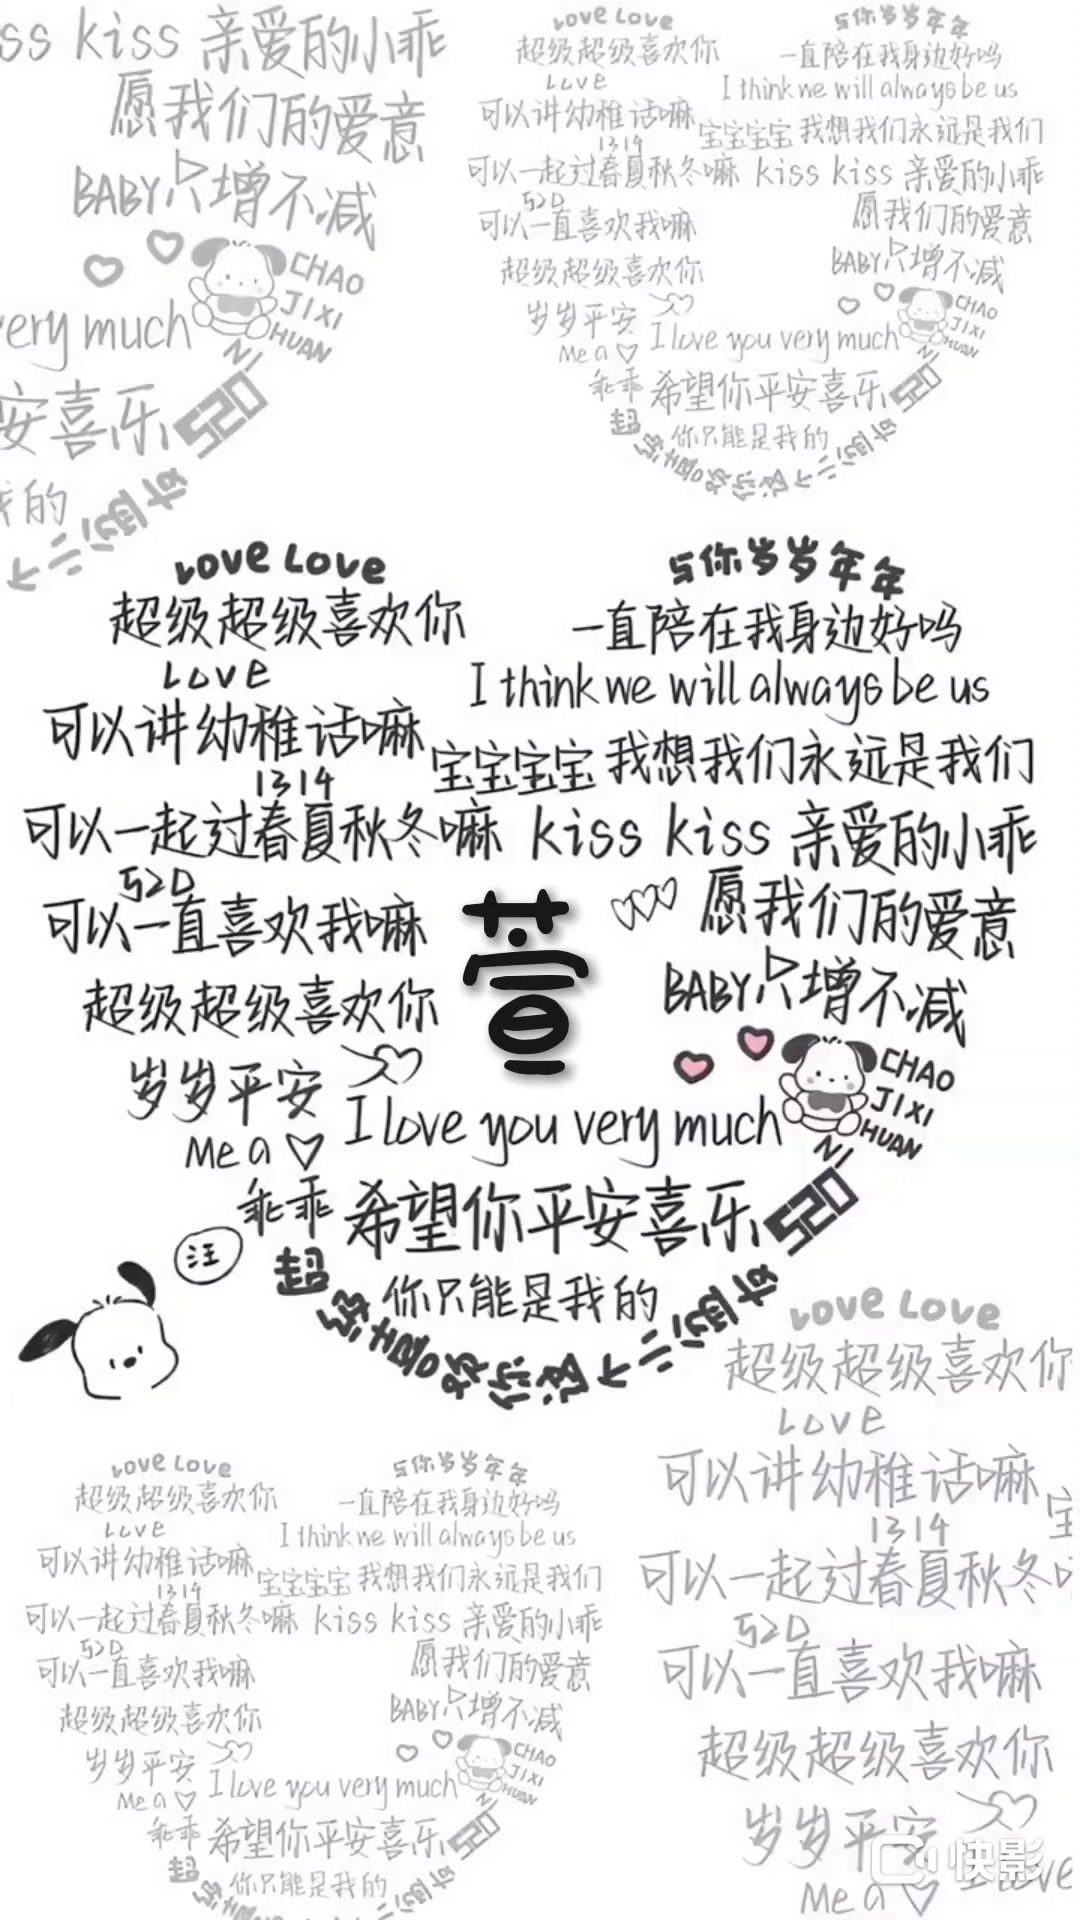 ss kiss 亲爱的小乖
愿我们的爱意
BABY只增不减
CHAO
JIXI
HUAN
NI
very much
安喜乐 520
我的
Love Love
与你岁岁年年
超级超级喜欢你
一直陪在我身边好吗
Love
I think we will always be us
可以讲幼稚话嘛
宝宝宝宝 我想我们永远是我们
1314
可以一起过春夏秋冬嘛 kiss kiss 亲爱的小乖
520
可以一直喜欢我嘛
愿我们的爱意
超级超级喜欢你
BABY只增不减
岁岁平安
CHAO
JIXI
HUAN
NI
I love you very much
Me a ♡
乖乖 希望你平安喜乐 520
你只能是我的
Love Love
与你岁岁年年
超级超级喜欢你
一直陪在我身边好吗
Love
I think we will always be us
可以讲幼稚话嘛
宝宝宝宝 我想我们永远是我们
1314
可以一起过春夏秋冬嘛 kiss kiss 亲爱的小乖
520
可以一直喜欢我嘛
愿我们的爱意
萱
超级超级喜欢你
BABY只增不减
岁岁平安
CHAO
JIXI
HUAN
NI
I love you very much
Me a ♡
乖乖 希望你平安喜乐 520
汪
你只能是我的
Love Love
超级超级喜欢你
Love
可以讲幼稚话嘛
1314
宝
可以一起过春夏秋冬
520
可以一直喜欢我嘛
超级超级喜欢你
岁岁平安
I love
Me a ♡
Love Love
与你岁岁年年
超级超级喜欢你
一直陪在我身边好吗
Love
I think we will always be us
可以讲幼稚话嘛
宝宝宝宝 我想我们永远是我们
1314
可以一起过春夏秋冬嘛 kiss kiss 亲爱的小乖
520
可以一直喜欢我嘛
愿我们的爱意
超级超级喜欢你
BABY只增不减
岁岁平安
CHAO
JIXI
HUAN
NI
I love you very much
Me a ♡
乖乖 希望你平安喜乐 520
你只能是我的
快影